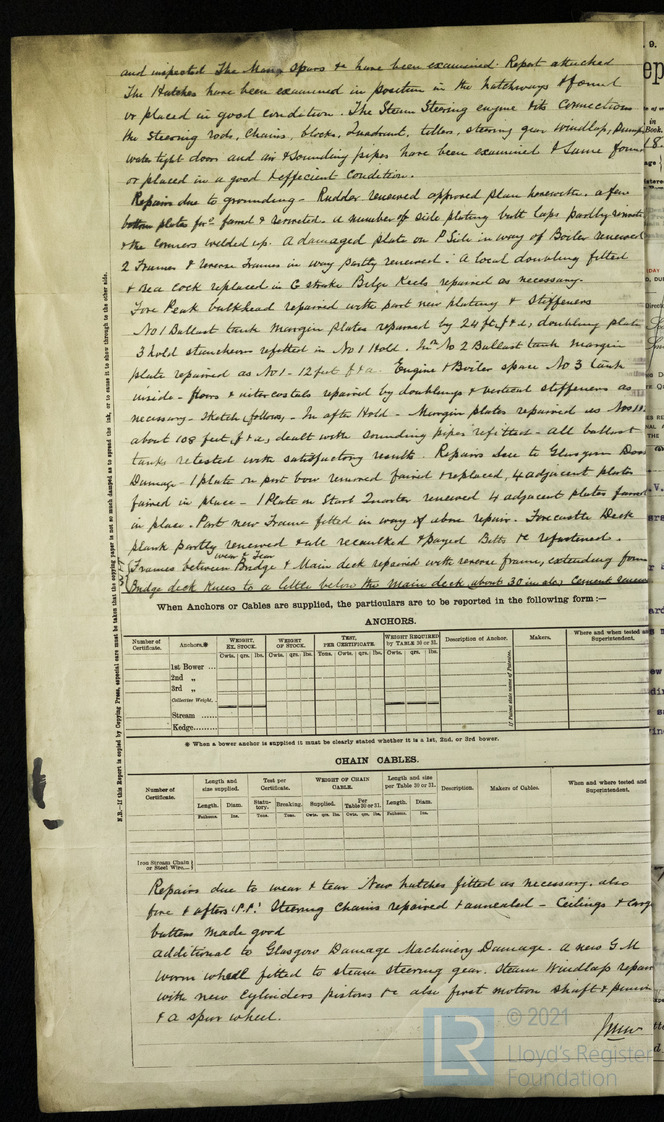 and inspected The Masts Spars &c have been examined. Report attached
The Hatches have been examined in position in the hatchways & found
or placed in good condition. The Steam Steering engine & its Connections
the steering rods, Chains, blocks, Quadrant, tiller, steering gear Windlass, Pumps
water tight doors and air & sounding pipes have been examined & same found
or placed in a good & efficient condition.
Repairs due to grounding - Rudder renewed approved plan herewith. a few
bottom plates for'd faired & reriveted. a number of side plating butt laps partly
& the corners welded up. A damaged plate on P Side in way of Boiler renewed
2 Frames & reverse Frames in way partly renewed. A local doubling fitted
& sea cock replaced in G strake Bilge Keels repaired as necessary.
Fore Peak bulkhead repaired with part new plating & stiffeners
No 1 Ballast tank margin plates repaired by 24 ft f & a, doubling plate
3 hold stanchions refitted in No 1 Hold. No 2 Ballast tank margin
plate repaired as No 1 - 12 feet f & a. Engine & Boiler space No 3 tank
inside - floors & intercostals repaired by doublings & vertical stiffeners as
necessary - Sketch follows - In after Hold - Margin plates repaired as No
about 108 feet f & a, dealt with sounding pipes refitted - all ballast
tanks retested with satisfactory results. Repairs due to Glasgow
Damage - 1 plate on port bow removed faired & replaced, 4 adjacent plates
faired in place - 1 Plate on Starb Quarter renewed 4 adjacent plates faired
in place. Part new Frame fitted in way of above repair. Forecastle Deck
plank partly renewed & all recaulked & payed Bitts &c refastened.
wear & Tear
Frames between Bridge & Main deck repaired with reverse frame, extending from
Bridge deck knees to a little below the main deck about 30 inches Cement
N.B.—If this Report is copied by Copying Press, especial care must be taken that the copying paper is not so much damped as to spread the ink, or to cause it to show through to the other side.
When Anchors or Cables are supplied, the particulars are to be reported in the following form :—
ANCHORS.
Number of Certificate. Anchors.* WEIGHT, EX. STOCK. WEIGHT OF STOCK. TEST, PER CERTIFICATE. WEIGHT REQUIRED by TABLE 30 or 31. Description of Anchor. Makers. Where and when tested and Superintendent.
Cwts. qrs. lbs. Cwts. qrs. lbs. Tons. Cwts. qrs. lbs. Cwts. qrs. lbs.
1st Bower ...
2nd „
3rd „
Collective Weight.
Stream ......
Kedge.........
If Patent state name of Patentee.
* When a bower anchor is supplied it must be clearly stated whether it is a 1st, 2nd, or 3rd bower.
CHAIN CABLES.
Number of Certificate. Length and size supplied. Test per Certificate. WEIGHT OF CHAIN CABLE. Length and size per Table 30 or 31. Description. Makers of Cables. When and where tested and Superintendent.
Length. Diam. Statutory. Breaking. Supplied. Per Table 30 or 31. Length. Diam.
Fathoms. Ins. Tons. Tons. Cwts. qrs. lbs. Cwts. qrs. lbs. Fathoms. Ins.
Iron Stream Chain or Steel Wire....
Repairs due to wear & tear New hatches fitted as necessary. also
fore & after. Steering chains repaired & annealed - Ceilings & cargo
battens made good
additional to Glasgow Damage Machinery Damage. a new G.M
worm wheel fitted to steam steering gear. Steam Windlass
with new cylinders pistons &c also first motion shaft &
& a spur wheel.
LR
© 2021
Lloyd's Register
Foundation